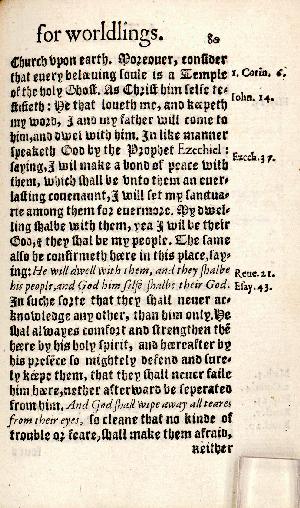 for worldlings. 80
Church vpon earth. Moreouer, consider
that euery beleuing soule is a Temple 1. Corin. 6.
of the holy Ghost. As Christ him selfe te-
stifieth: He that loueth me, and kepeth Iohn. 14.
my word, I and my father will come to
him, and dwel with him. In like manner
speaketh God by the Prophet Ezechiel: Ezech. 37.
saying, I wil make a bond of peace with
them, which shall be vnto them an euer-
lasting couenaunt, I will set my sanctua-
rie among them for euermore. My dwel-
ling shalbe with them, yea I wil be their
God, & they shal be my people. The same
also he confirmeth here in this place, say-
ing: He will dwell with them, and they shalbe Reue. 21.
his people, and God him selfe shalbe their God. Esay. 43.
In suche sorte that they shall neuer ac-
knowledge any other, than him only. He
shal alwayes comfort and strengthen thẽ
here by his holy spirit, and hereafter by
his presẽce so mightely defend and sure-
ly kepe them, that they shall neuer faile
him here, nether afterward be seperated
from him. And God shall wipe away all teares
from their eyes, so cleane that no kinde of
trouble or feare, shall make them afraid,
Neither